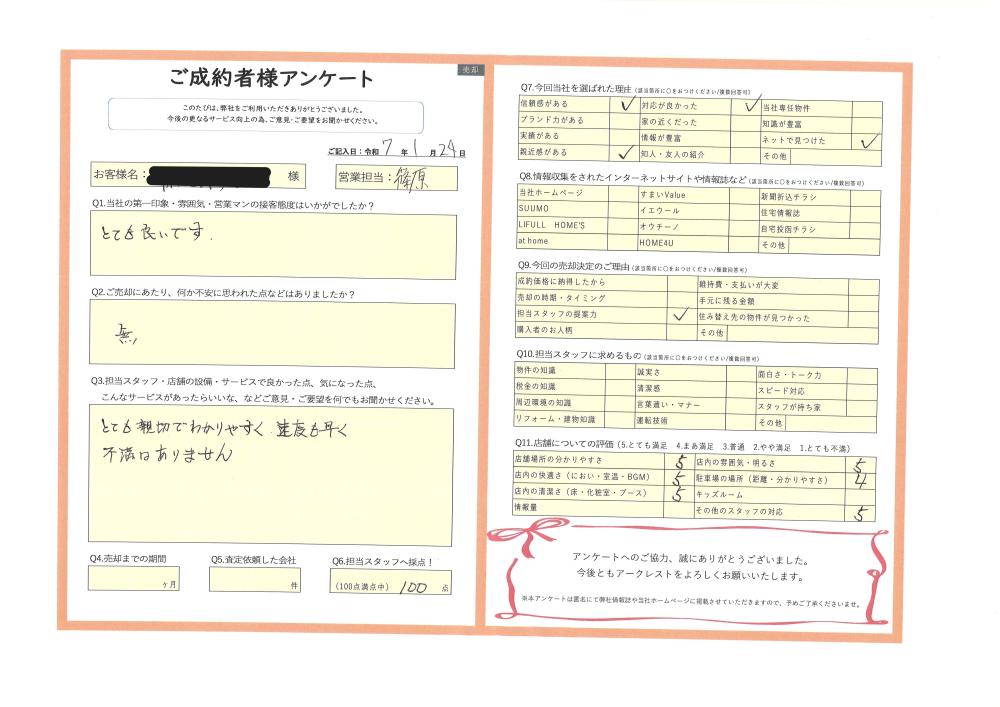 売却
ご成約者様アンケート
このたびは、弊社をご利用いただきありがとうございました。
今後の更なるサービス向上の為、ご意見・ご要望をお聞かせください。
ご記入日：令和 7 年 1 月 24 日
お客様名： 様
営業担当： 篠原
Q1.当社の第一印象・雰囲気・営業マンの接客態度はいかがでしたか？
とても良いです.
Q2.ご売却にあたり、何か不安に思われた点などはありましたか？
無
Q3.担当スタッフ・店舗の設備・サービスで良かった点、気になった点、
こんなサービスがあったらいいな、などご意見・ご要望を何でもお聞かせください。
とても親切でわかりやすく 速度も早く
不満はありません
Q4.売却までの期間
ヶ月
Q5.査定依頼した会社
件
Q6.担当スタッフへ採点！
(100点満点中) 100 点
Q7.今回当社を選ばれた理由（該当箇所に〇をおつけください/複数回答可）
信頼感がある ✓ 対応が良かった ✓ 当社専任物件
ブランド力がある 家の近くだった 知識が豊富
実績がある 情報が豊富 ネットで見つけた ✓
親近感がある ✓ 知人・友人の紹介 その他
Q8.情報収集をされたインターネットサイトや情報誌など（該当箇所に〇をおつけください/複数回答可）
当社ホームページ すまいValue 新聞折込チラシ
SUUMO イエウール 住宅情報誌
LIFULL HOME'S オウチーノ 自宅投函チラシ
at home HOME4U その他
Q9.今回の売却決定のご理由（該当箇所に〇をおつけください/複数回答可）
成約価格に納得したから 維持費・支払いが大変
売却の時期・タイミング 手元に残る金額
担当スタッフの提案力 ✓ 住み替え先の物件が見つかった
購入者のお人柄 その他
Q10.担当スタッフに求めるもの（該当箇所に〇をおつけください/複数回答可）
物件の知識 誠実さ 面白さ・トーク力
税金の知識 清潔感 スピード対応
周辺環境の知識 言葉遣い・マナー スタッフが持ち家
リフォーム・建物知識 運転技術 その他
Q11.店舗についての評価（5.とても満足 4.まあ満足 3.普通 2.やや満足 1.とても不満）
店舗場所の分かりやすさ 5 店内の雰囲気・明るさ 5
店内の快適さ（におい・室温・BGM） 5 駐車場の場所（距離・分かりやすさ） 4
店内の清潔さ（床・化粧室・ブース） 5 キッズルーム
情報量 その他のスタッフの対応 5
アンケートへのご協力、誠にありがとうございました。
今後ともアークレストをよろしくお願いいたします。
※本アンケートは匿名にて弊社情報誌や当社ホームページに掲載させていただきますので、予めご了承くださいませ。